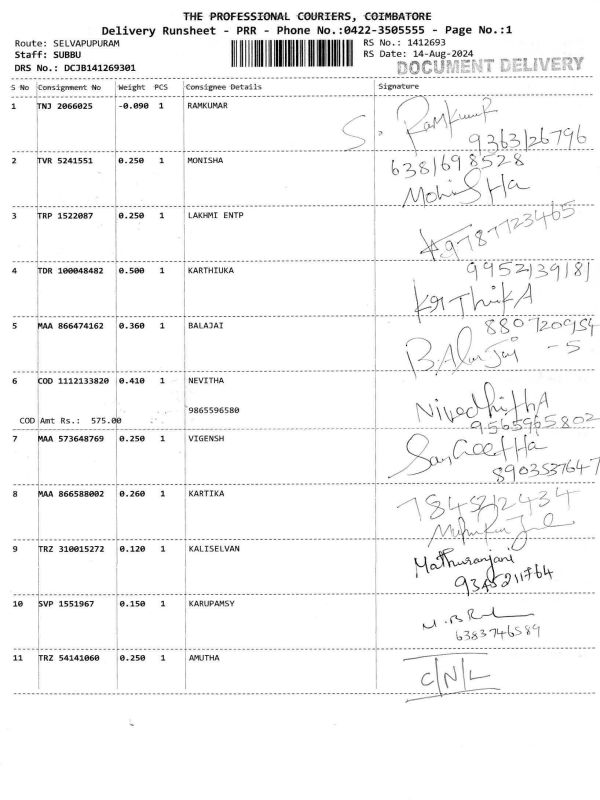 THE PROFESSIONAL COURIERS, COIMBATORE
Delivery Runsheet - PRR - Phone No.:0422-3505555 - Page No.:1
Route: SELVAPUPURAM RS No.: 1412693
Staff: SUBBU RS Date: 14-Aug-2024
DRS No.: DCJB141269301 DOCUMENT DELIVERY
S No Consignment No Weight PCS Consignee Details Signature
1 TNJ 2066025 -0.090 1 RAMKUMAR S. RamKumaR
9363126796
2 TVR 5241551 0.250 1 MONISHA 6381698528
MohiSHa
3 TRP 1522087 0.250 1 LAKHMI ENTP
9787723465
4 TDR 100048482 0.500 1 KARTHIUKA 9952139181
KaThikA
5 MAA 866474162 0.360 1 BALAJAI 880720954
BAlanJai -5
6 COD 1112133820 0.410 1 NEVITHA NivedhithA
9865596580 9565965802
COD Amt Rs.: 575.00
7 MAA 573648769 0.250 1 VIGENSH SanGeetHa
8903537647
8 MAA 866588002 0.260 1 KARTIKA 7845212434
9 TRZ 310015272 0.120 1 KALISELVAN Mathuranjani
9345211764
10 SVP 1551967 0.150 1 KARUPAMSY
6383746589
11 TRZ 54141060 0.250 1 AMUTHA C/N/L